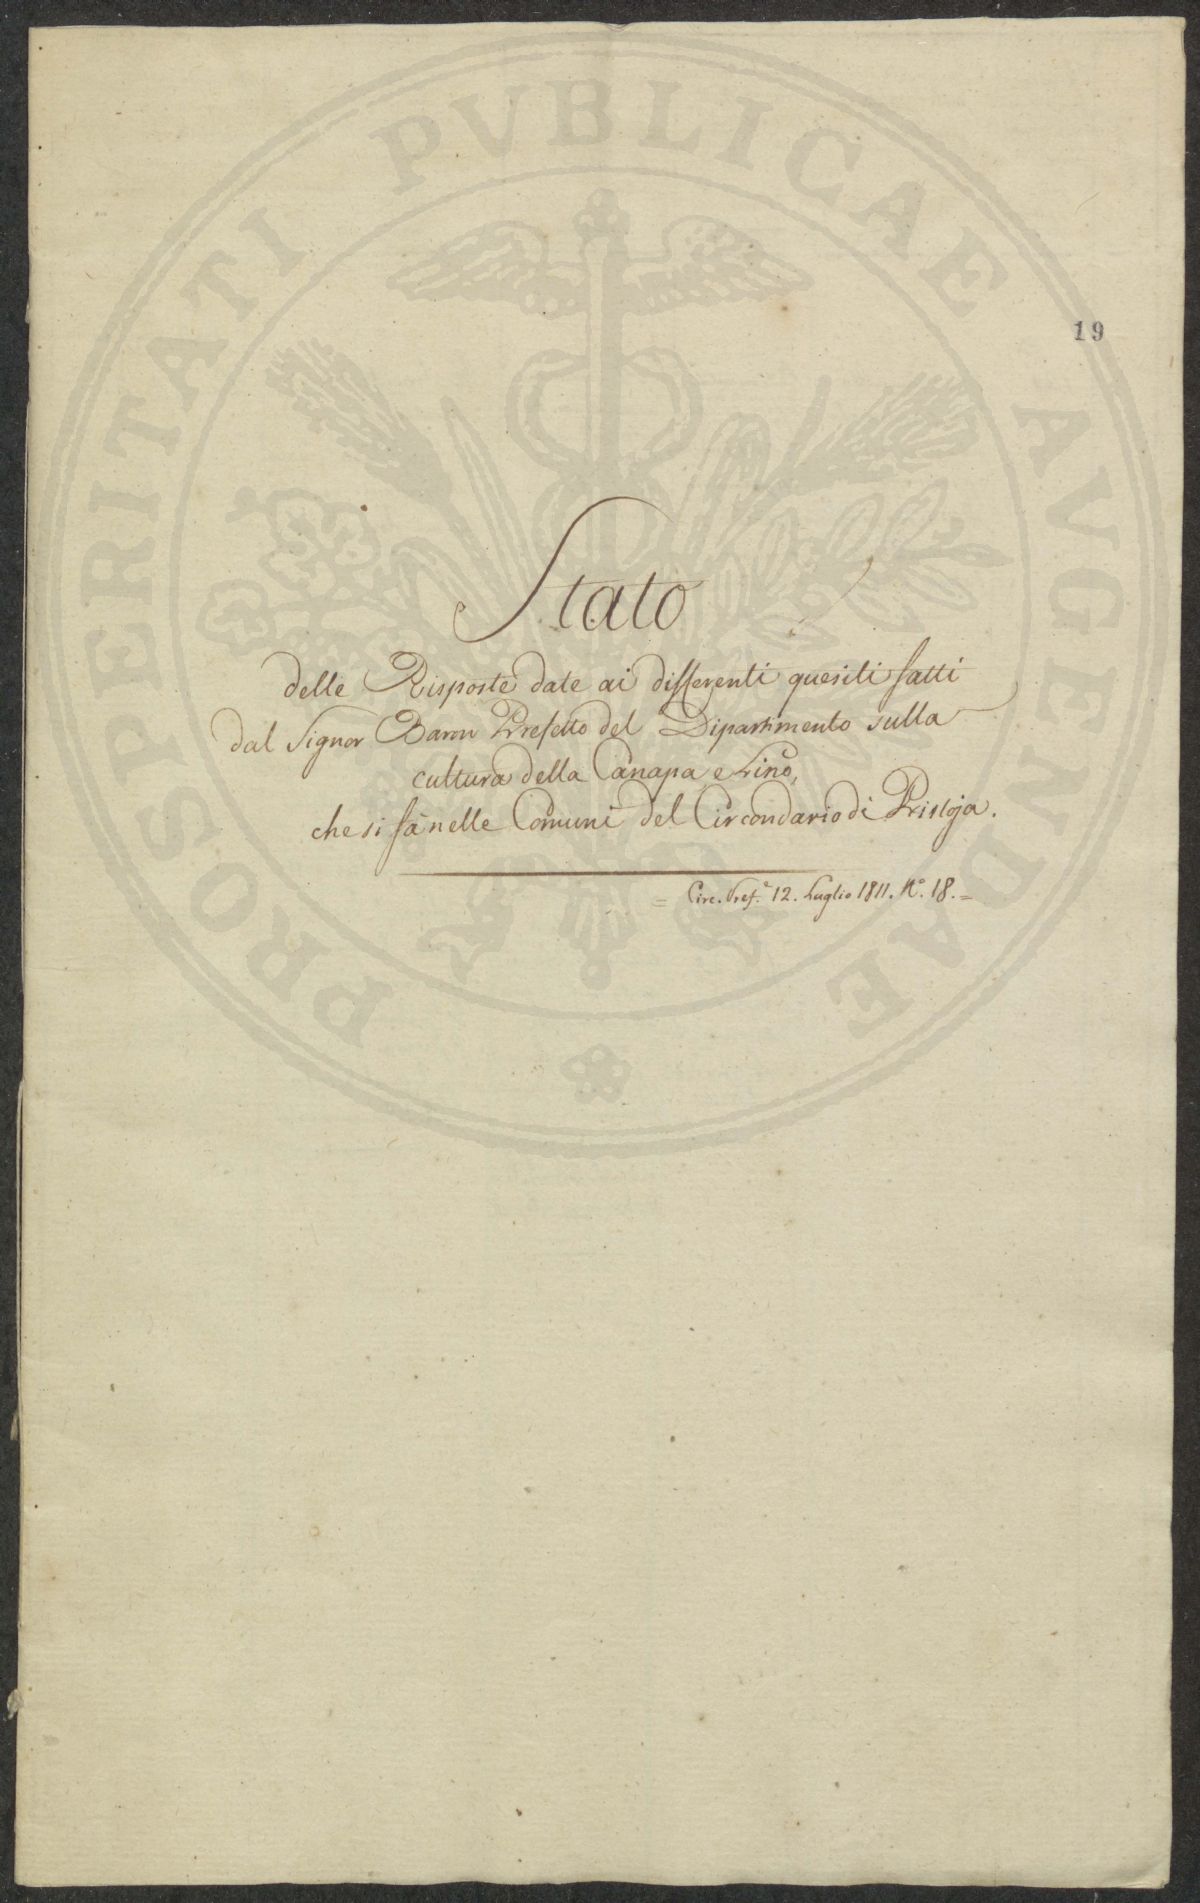 PROSPERITATI PVBLICAE AVGENDAE
19
Stato
delle Risposte date ai differenti quesiti fatti
dal Signor Baron Prefetto del Dipartimento sulla
cultura della Canapa e Lino,
che si fà nelle Comuni del Circondario di Pistoja.
= Circ. Pref.e 12. Luglio 1811. N.o 18. =